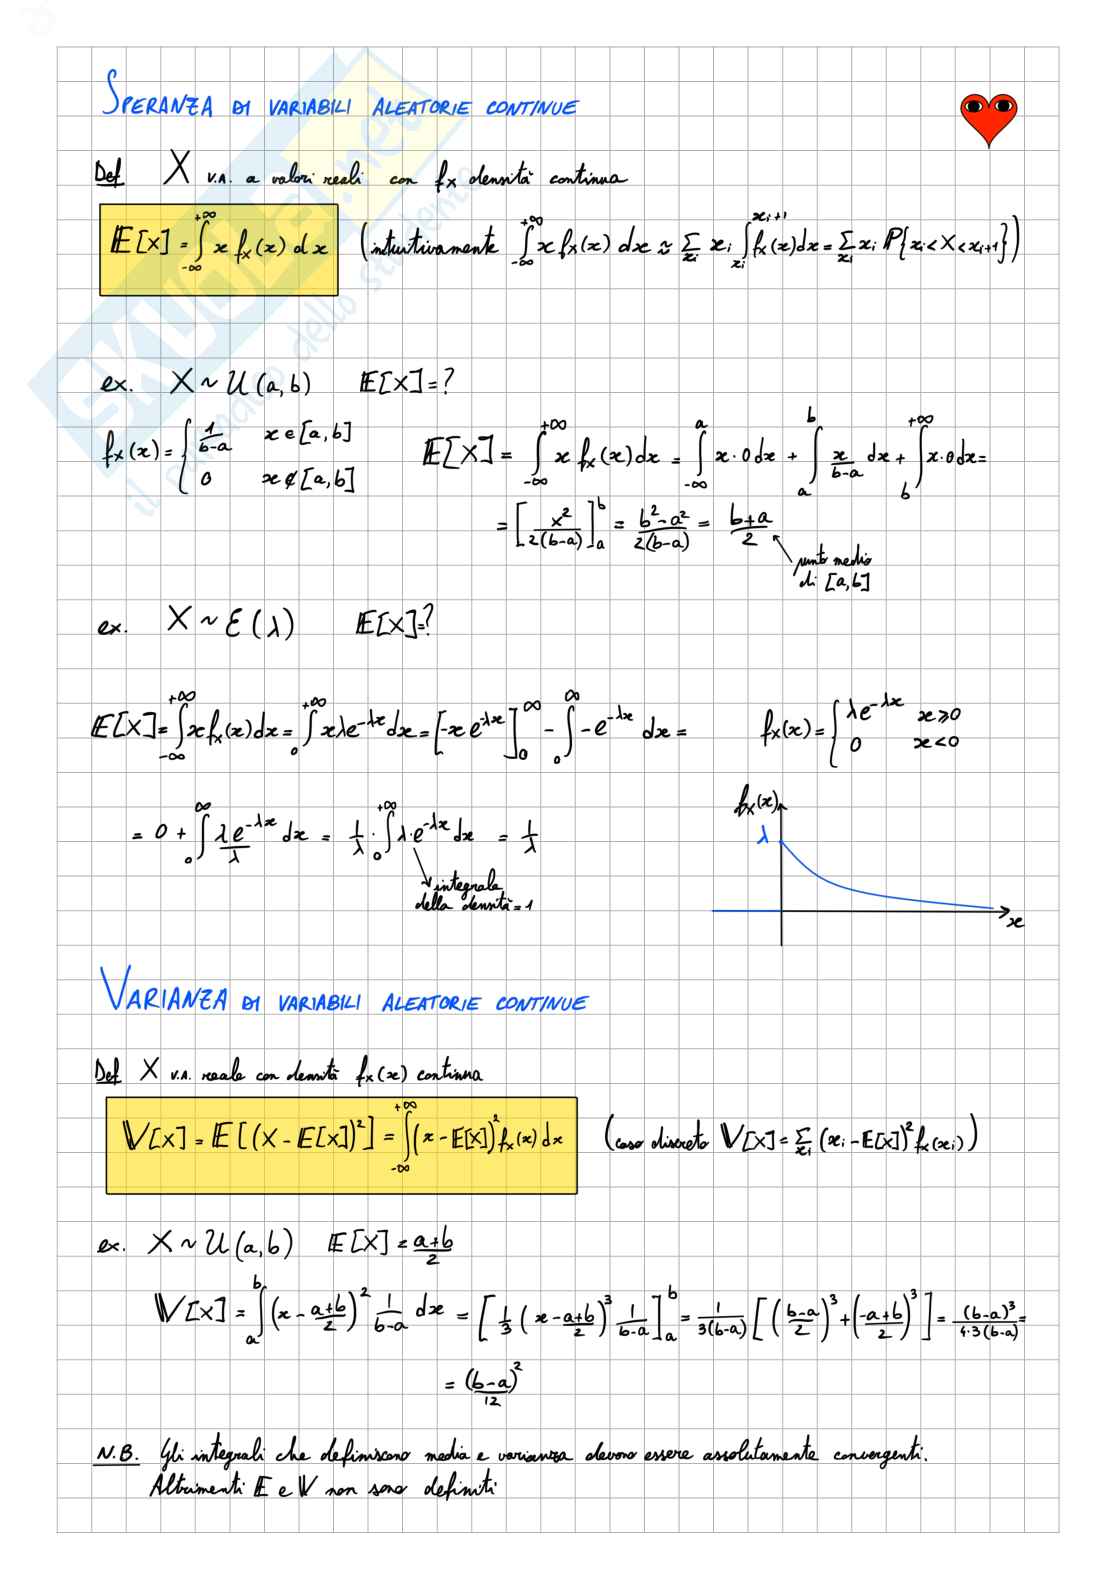 SPERANZA DI VARIABILI ALEATORIE CONTINUE
Def X v.a. a valori reali con fx densità continua
E[X] = ∫_{-∞}^{+∞} x fx(x) dx (intuitivamente ∫_{-∞}^{+∞} x fx(x) dx ≈ Σ_{xi} xi ∫_{xi}^{xi+1} fx(x)dx = Σ_{xi} xi P{xi < X < xi+1})
ex. X ~ U(a,b) E[X] = ?
fx(x) = { 1/(b-a) x ∈ [a,b]
0 x ∉ [a,b]
E[X] = ∫_{-∞}^{+∞} x fx(x) dx = ∫_{-∞}^{a} x·0 dx + ∫_{a}^{b} x/(b-a) dx + ∫_{b}^{+∞} x·0 dx =
= [x²/2(b-a)]_a^b = (b²-a²)/2(b-a) = (b+a)/2
punto medio
di [a,b]
ex. X ~ E(λ) E[X]=?
E[X] = ∫_{-∞}^{+∞} x fx(x) dx = ∫_{0}^{+∞} xλe^{-λx} dx = [-x e^{-λx}]_0^∞ - ∫_0^∞ -e^{-λx} dx =
fx(x) = { λe^{-λx} x≥0
0 x<0
= 0 + ∫_0^∞ λe^{-λx}/λ dx = 1/λ · ∫_0^{+∞} λ·e^{-λx} dx = 1/λ
integrale
della densità = 1
fx(x)
λ
x
VARIANZA DI VARIABILI ALEATORIE CONTINUE
Def X v.a. reale con densità fx(x) continua
V[X] = E[(X - E[X])²] = ∫_{-∞}^{+∞} (x - E[X])² fx(x) dx (caso discreto V[X] = Σ_{xi} (xi - E[X])² fx(xi))
ex. X ~ U(a,b) E[X] = (a+b)/2
V[X] = ∫_a^b (x - (a+b)/2)² 1/(b-a) dx = [1/3 (x - (a+b)/2)³ 1/(b-a)]_a^b = 1/3(b-a) [((b-a)/2)³ + ((-a+b)/2)³] = (b-a)³/4·3(b-a) =
= (b-a)²/12
N.B. Gli integrali che definiscono media e varianza devono essere assolutamente convergenti.
Altrimenti E e V non sono definiti